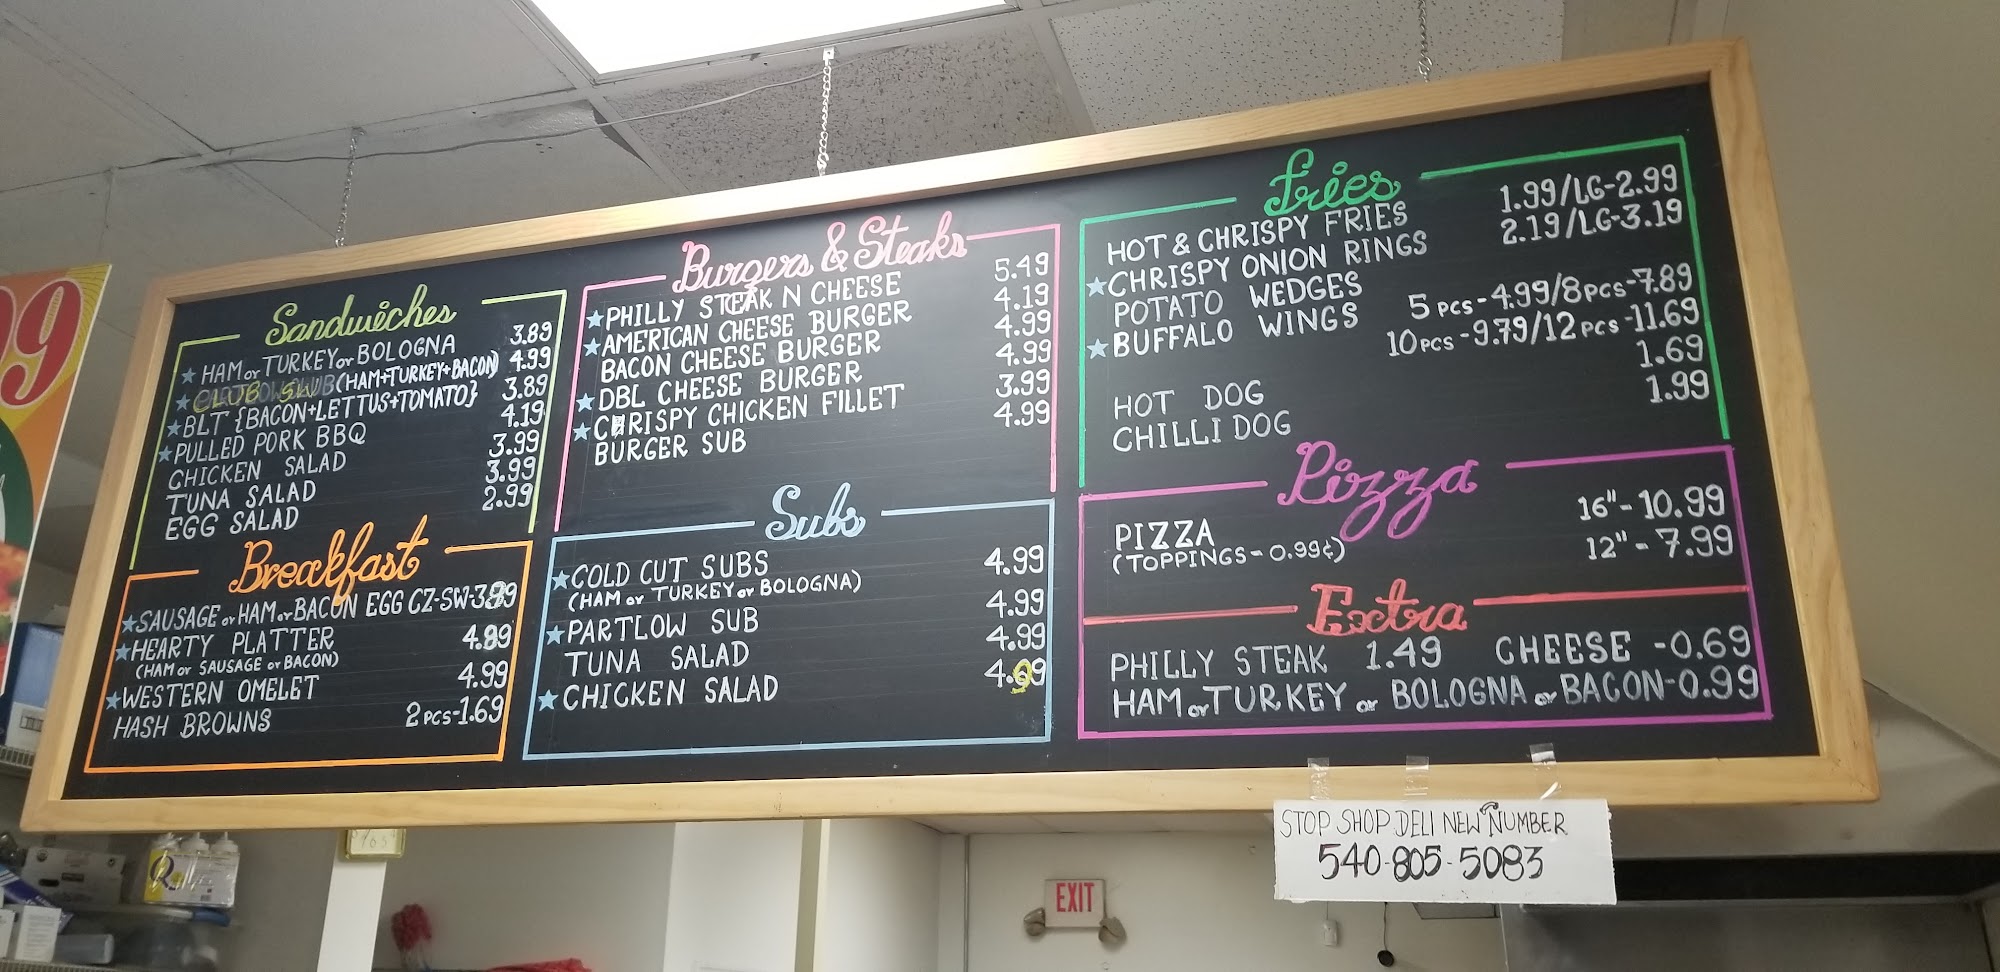 99
Sandwiches
★HAM or TURKEY or BOLOGNA 3.89
★CLUB SW (HAM+TURKEY+BACON) 4.99
★BLT {BACON+LETTUS+TOMATO} 3.89
★PULLED PORK BBQ 4.19
CHICKEN SALAD 3.99
TUNA SALAD 3.99
EGG SALAD 2.99
Breakfast
★SAUSAGE or HAM or BACON EGG CZ-SW-3.99
★HEARTY PLATTER 4.99
(HAM or SAUSAGE or BACON)
★WESTERN OMELET 4.99
HASH BROWNS 2 PCS-1.69
Burgers & Steaks
★PHILLY STEAK N CHEESE 5.49
★AMERICAN CHEESE BURGER 4.19
BACON CHEESE BURGER 4.99
★DBL CHEESE BURGER 4.99
★CHRISPY CHICKEN FILLET 3.99
BURGER SUB 4.99
Subs
★COLD CUT SUBS 4.99
(HAM or TURKEY or BOLOGNA)
★PARTLOW SUB 4.99
TUNA SALAD 4.99
★CHICKEN SALAD 4.99
Fries
HOT & CHRISPY FRIES 1.99/LG-2.99
★CHRISPY ONION RINGS 2.19/LG-3.19
POTATO WEDGES
★BUFFALO WINGS 5 PCS-4.99/8PCS-7.89
10PCS-9.79/12PCS-11.69
HOT DOG 1.69
CHILLI DOG 1.99
Pizza
PIZZA 16"-10.99
(TOPPINGS-0.99¢) 12"-7.99
Extra
PHILLY STEAK 1.49 CHEESE -0.69
HAM or TURKEY or BOLOGNA or BACON-0.99
STOP SHOP DELI NEW NUMBER
540-805-5083
EXIT